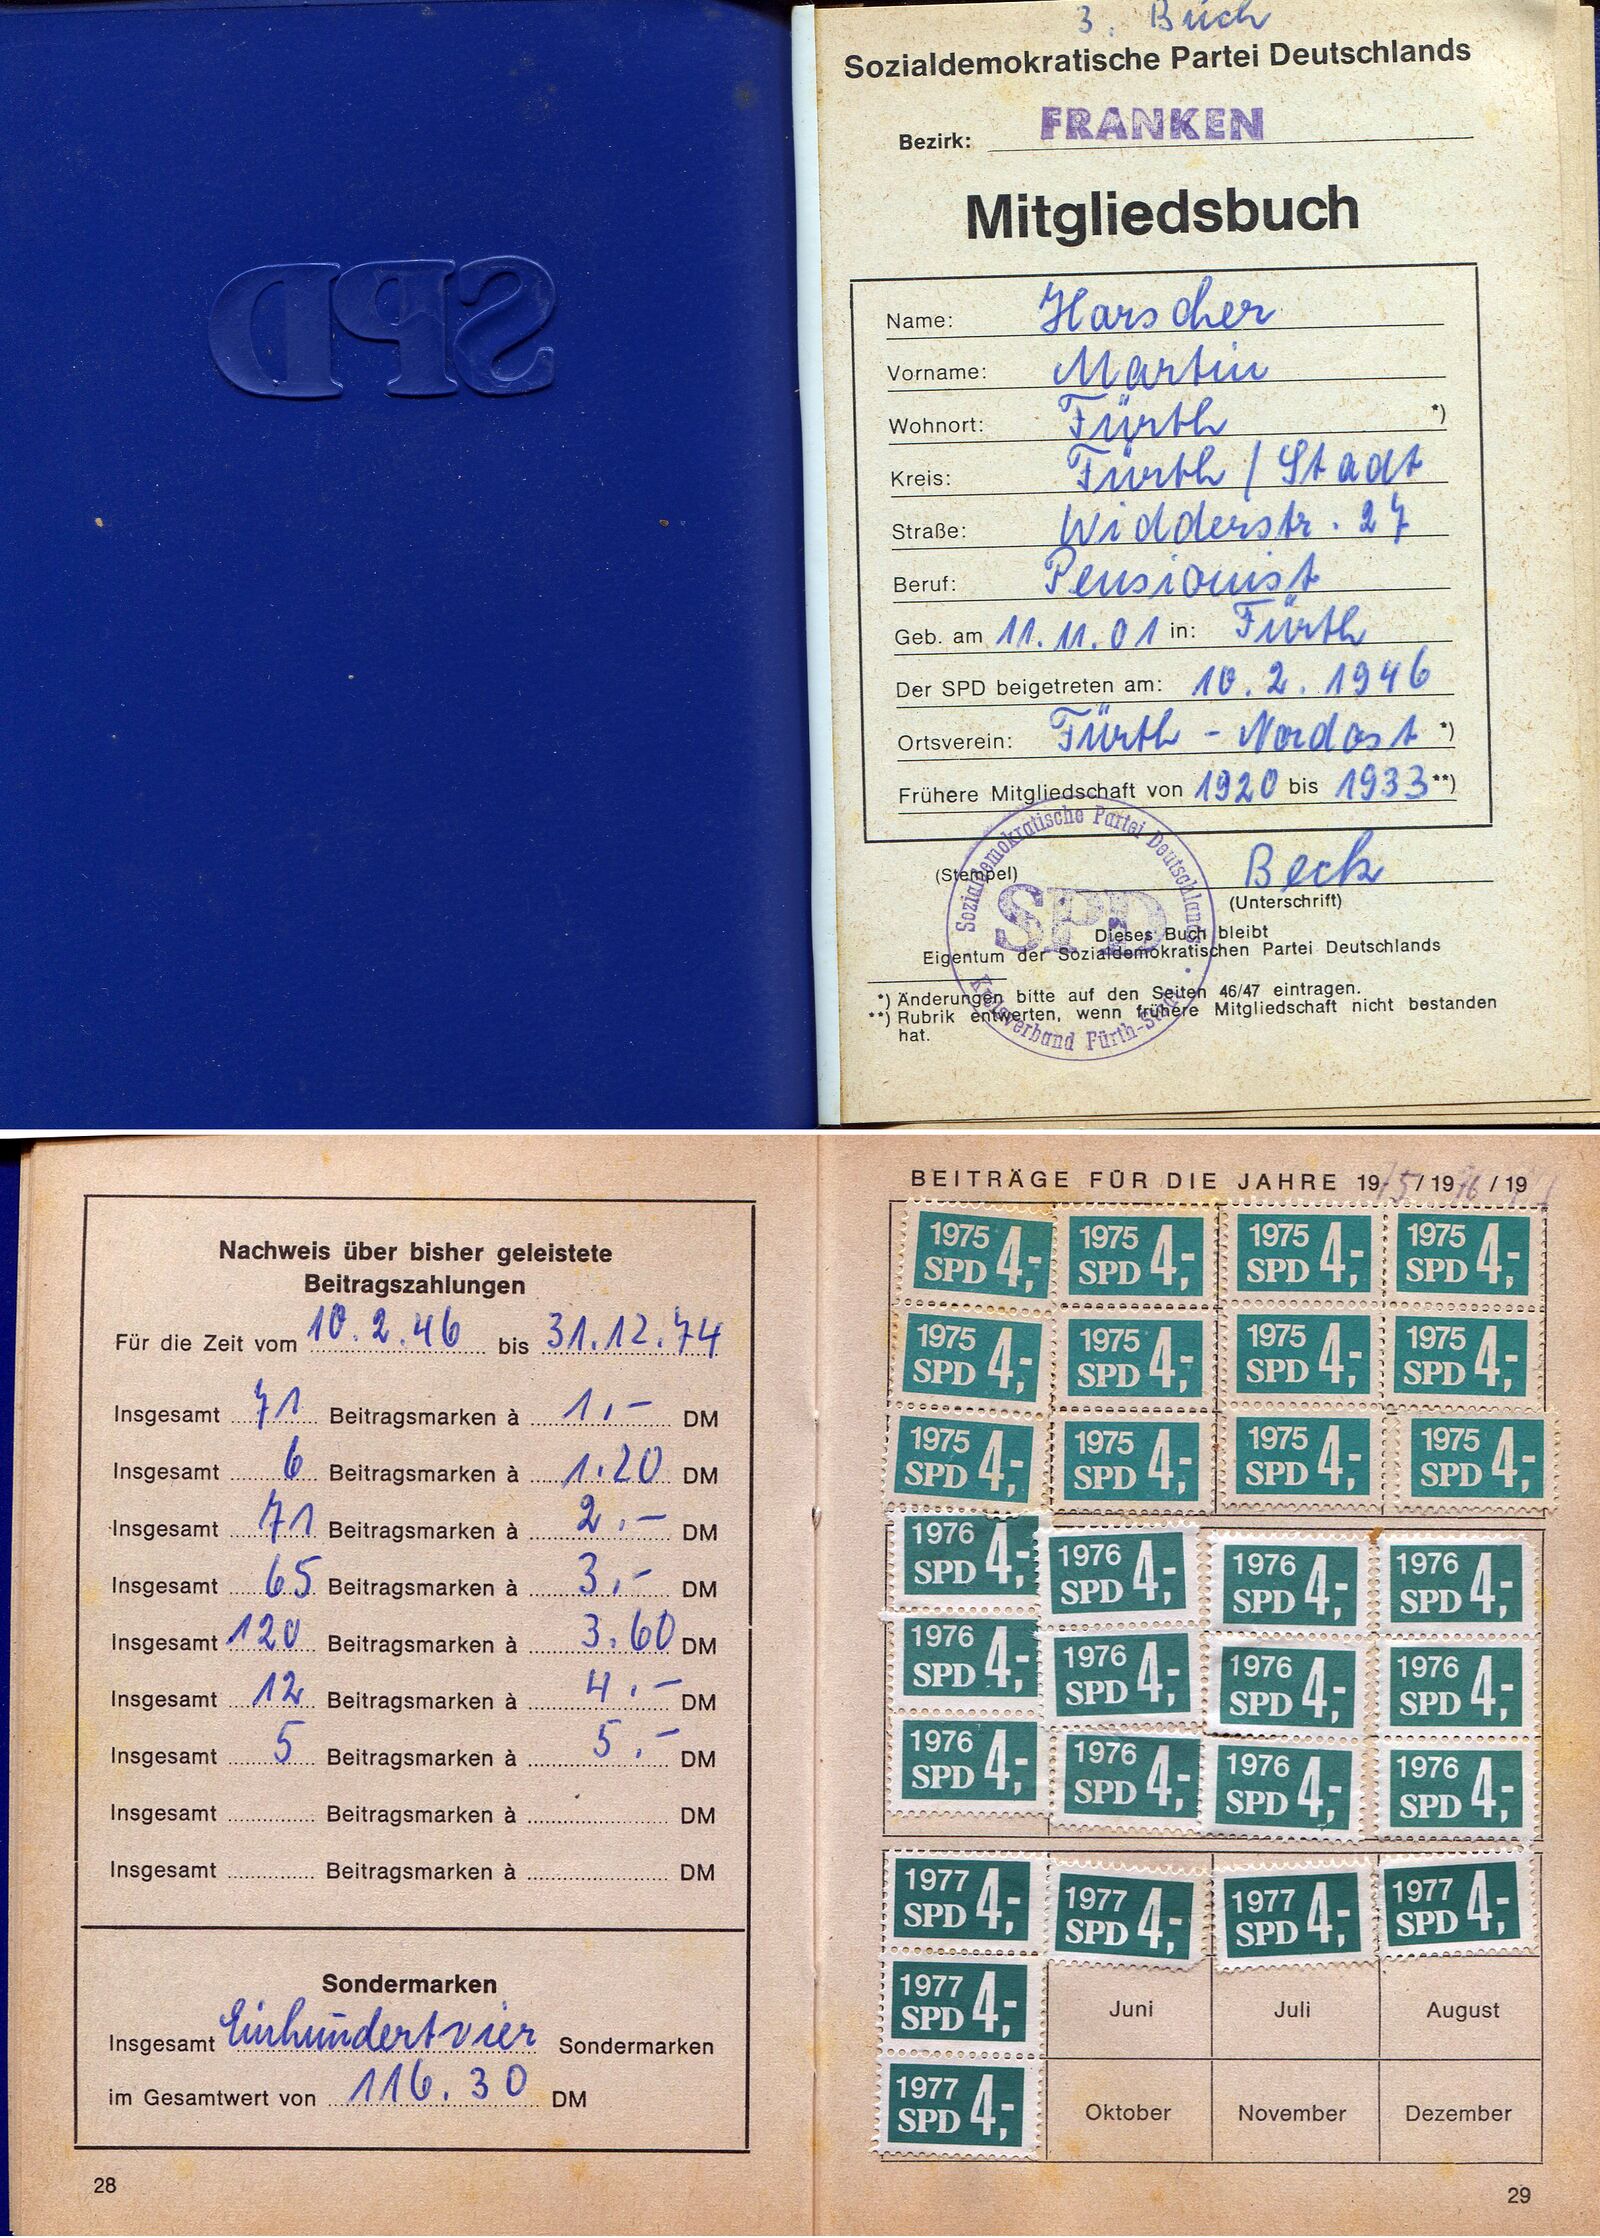 SPD
3. Buch
Sozialdemokratische Partei Deutschlands
Bezirk: FRANKEN
Mitgliedsbuch
Name: Harscher
Vorname: Martin
Wohnort: Fürth *)
Kreis: Fürth / Stadt
Straße: Widderstr. 27
Beruf: Pensionist
Geb. am 11.11.01 in: Fürth
Der SPD beigetreten am: 10.2.1946
Ortsverein: Fürth - Nordost *)
Frühere Mitgliedschaft von 1920 bis 1933 **)
Sozialdemokratische Partei Deutschlands
SPD
Kreisverband Fürth-Stadt
(Stempel) Beck
(Unterschrift)
Dieses Buch bleibt
Eigentum der Sozialdemokratischen Partei Deutschlands
*) Änderungen bitte auf den Seiten 46/47 eintragen.
**) Rubrik entwerten, wenn frühere Mitgliedschaft nicht bestanden
hat.
Nachweis über bisher geleistete
Beitragszahlungen
Für die Zeit vom 10.2.46 bis 31.12.74
Insgesamt 71 Beitragsmarken à 1,- DM
Insgesamt 6 Beitragsmarken à 1.20 DM
Insgesamt 71 Beitragsmarken à 2,- DM
Insgesamt 65 Beitragsmarken à 3,- DM
Insgesamt 120 Beitragsmarken à 3.60 DM
Insgesamt 12 Beitragsmarken à 4.- DM
Insgesamt 5 Beitragsmarken à 5.- DM
Insgesamt Beitragsmarken à DM
Insgesamt Beitragsmarken à DM
Sondermarken
Insgesamt Einhundertvier Sondermarken
im Gesamtwert von 116.30 DM
28
BEITRÄGE FÜR DIE JAHRE 1975 / 1976 / 19
1975 SPD 4,- 1975 SPD 4,- 1975 SPD 4,- 1975 SPD 4,-
1975 SPD 4,- 1975 SPD 4,- 1975 SPD 4,- 1975 SPD 4,-
1975 SPD 4,- 1975 SPD 4,- 1975 SPD 4,- 1975 SPD 4,-
1976 SPD 4,- 1976 SPD 4,- 1976 SPD 4,- 1976 SPD 4,-
1976 SPD 4,- 1976 SPD 4,- 1976 SPD 4,- 1976 SPD 4,-
1976 SPD 4,- 1976 SPD 4,- 1976 SPD 4,- 1976 SPD 4,-
1977 SPD 4,- 1977 SPD 4,- 1977 SPD 4,- 1977 SPD 4,-
1977 SPD 4,- Juni Juli August
1977 SPD 4,- Oktober November Dezember
29